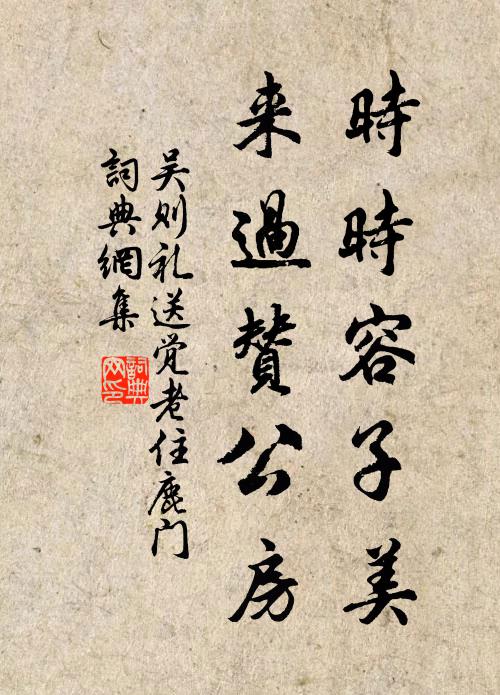 時時容子美
来過贊公房
吴则礼送觉老住鹿门
詞典網集
詞典
网印